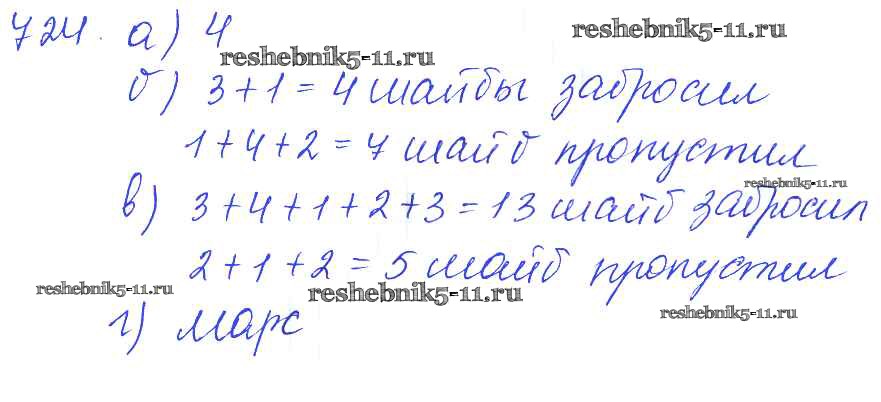 724. а) 4
reshebnik5-11.ru
reshebnik5-11.ru
б) 3+1=4 шайбы забросил
1+4+2=7 шайб пропустил
reshebnik5-11.ru
в) 3+4+1+2+3=13 шайб забросил
2+1+2=5 шайб пропустил
reshebnik5-11.ru
reshebnik5-11.ru
reshebnik5-11.ru
г) Марс